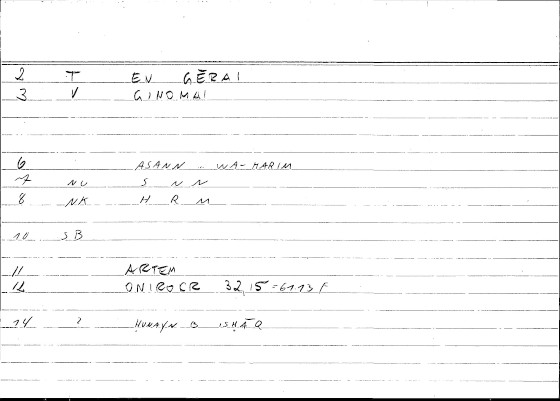 2 T EN GĒRAI
3 V GINOMAI
6 ASANN .. WA-HARIM
7 NU S N N
8 NK H R M
10 SB
11 ARTEM
12 ONIROCR 32,15 = 6113 F
14 ? ḤUNAYN B ISḤĀQ